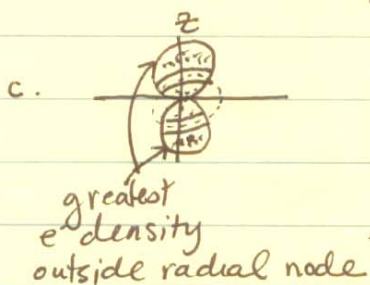 z
c.
greatest
e⁻ density
outside radial node